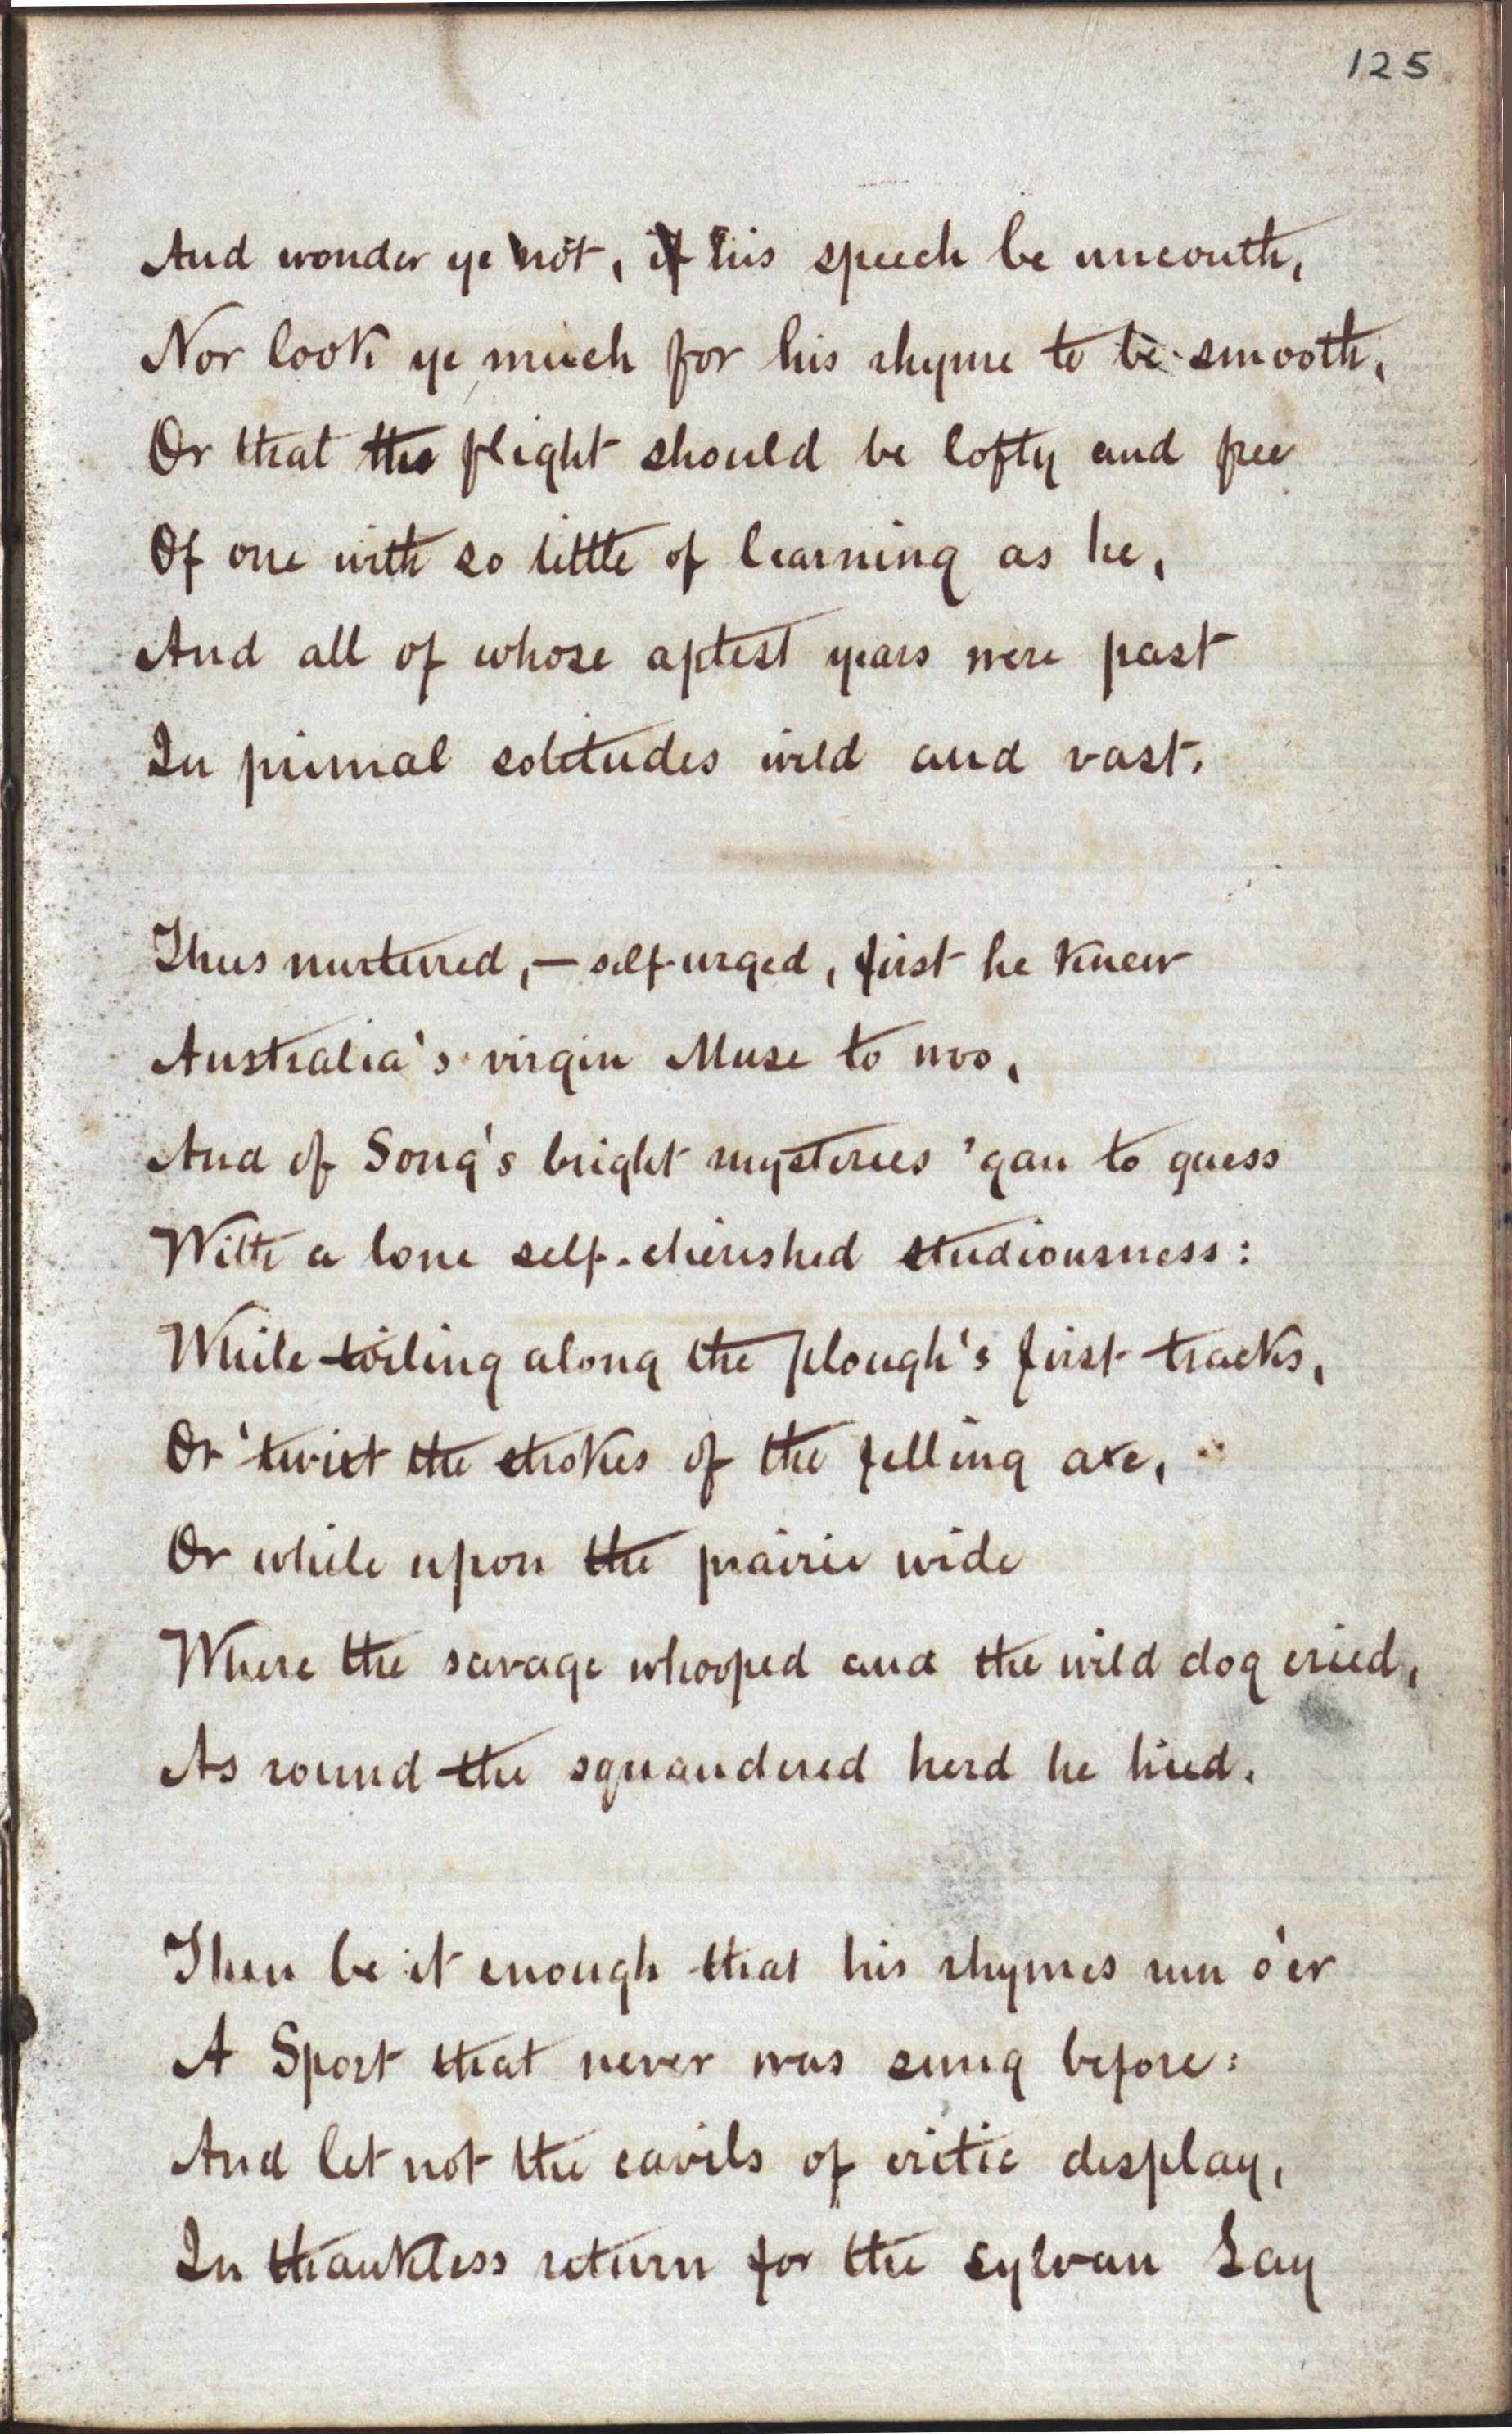 125
And wonder ye not, if his speech be uncouth,
Nor look ye much for his rhyme to be smooth,
Or that the flight should be lofty and free
Of one with so little of learning as he,
And all of whose aptest years were past
In primal solitudes wild and vast.
Thus nurtured, — self-urged, first he knew
Australia's virgin Muse to woo,
And of Song's bright mysteries 'gan to guess
With a lone self-cherished studiousness:
While toiling along the plough's first tracks,
Or 'twixt the strokes of the felling axe,
Or while upon the prairie wide
Where the savage whooped and the wild dog cried,
As round the squandered herd he hied.
Then be it enough that his rhymes run o'er
A Sport that never was sung before:
And let not the cavils of critic display,
In thankless return for the sylvan Lay